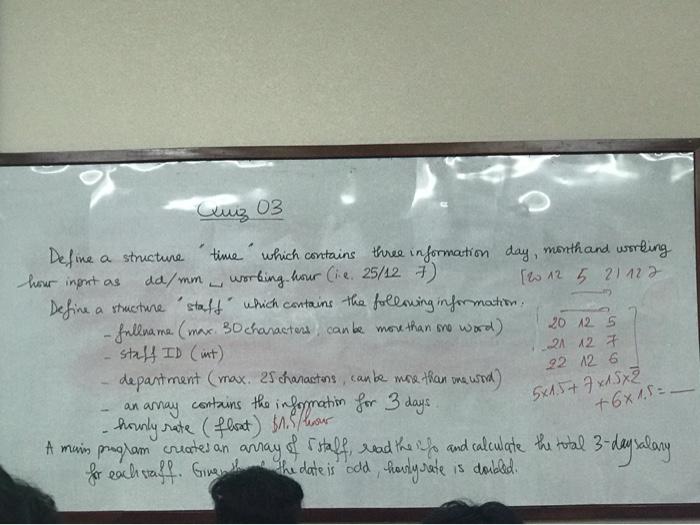 Quiz 03
Define a structure "time" which contains three information day, month and working
hour input as dd/mm ␣ working hour (i.e. 25/12 7)
[20 12 5 21 12 7
Define a structure "staff" which contains the following information:
- fullname (max. 30 characters, can be more than one word)
20 12 5
- staff ID (int)
21 12 7
- department (max. 25 characters, can be more than one word)
22 12 6
- an array contains the information for 3 days
5x1.5 + 7x1.5x2
- hourly rate (float) $1.5/hour
+ 6x1.5 = —
A main program creates an array of 5 staff, read the info and calculate the total 3-day salary
for each staff. Given the date is odd, hourly rate is doubled.